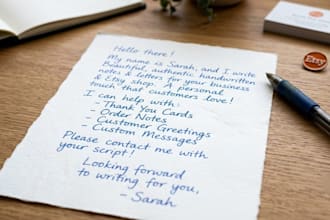 Hello there!
My name is Sarah, and I write
Beautiful, authentic handwritten
notes & letters for your business
& Etsy shop. A personal
touch that customers love!
I can help with:
- Thank You Cards
- Order Notes
- Customer Greetings
- Custom Messages
Please contact me with
your script!
Looking forward
to writing for you,
- Sarah
Etsy